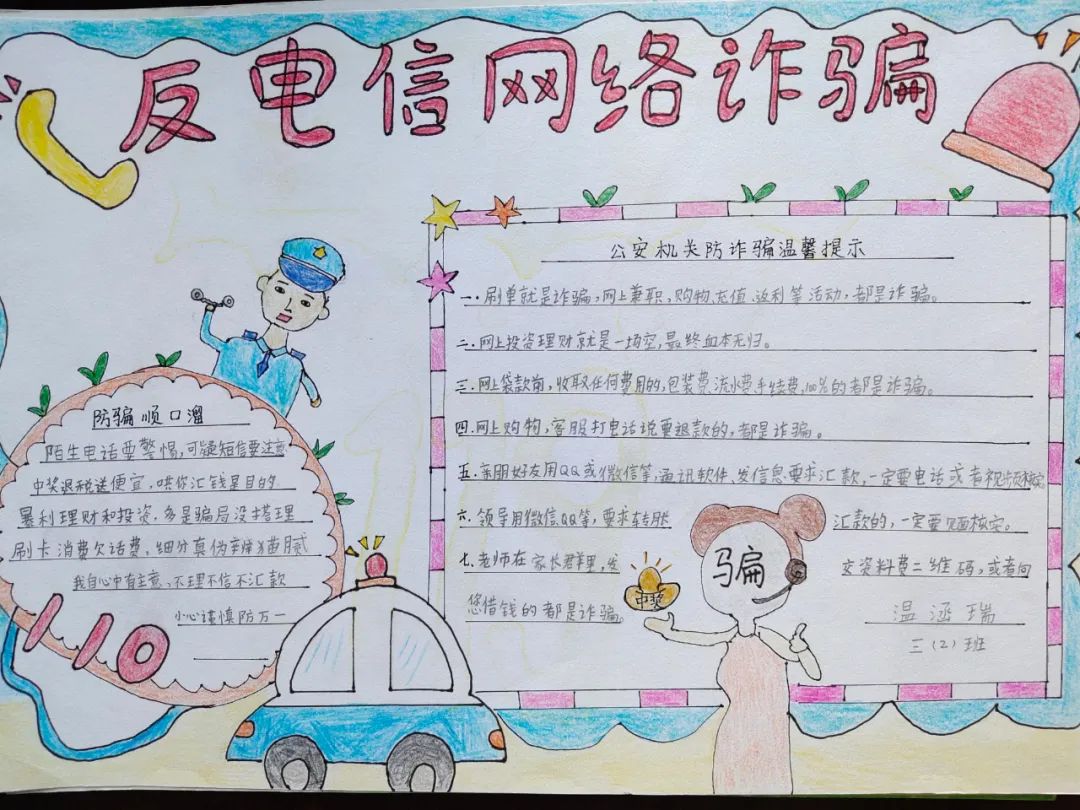 反电信网络诈骗
公安机关防诈骗温馨提示
一.刷单就是诈骗,网上兼职、购物、充值、返利等活动,都是诈骗。
二.网上投资理财就是一场空,最终血本无归。
三.网上袋款前,收取任何费用的,包装费、流水费、手续费,100%的都是诈骗。
四.网上购物,客服打电话说要退款的,都是诈骗。
五.亲朋好友用QQ或微信等,通讯软件,发信息要求汇款,一定要电话或者视频核实
六.领导用微信QQ等,要求转账 汇款的,一定要见面核实。
七.老师在家长群里,发 交资料费二维码,或者向
您借钱的都是诈骗。
温涵瑞
三(2)班
防骗顺口溜
陌生电话要警惕,可疑短信要注意
中奖退税送便宜,哄你汇钱是目的
暴利理财和投资,多是骗局没搭理
刷卡消费欠话费,细分真伪辨猫腻
我自心中有主意,不理不信不汇款
小心谨慎防万一
110
骗
中奖